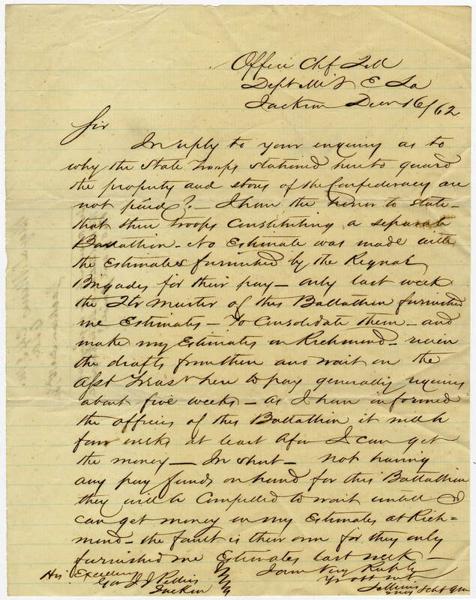 Office Chf Q M
Dept Miss & E La
Jackson Decr 16/62
Sir
In reply to your enquiry as to
why the State Troops stationed here to guard
the property and stores of the Confederacy are
not paid? – I have the honor to state
that these Troops constituting a separate
Battallion – No Estimate was made with
the Estimates furnished by the Regnal
Brigades for their pay – only last week
the Qr Master of this Battallion furnished
me Estimates – To Consolidate them – and
make my Estimates on Richmond – receive
the drafts from then and wait on the
Asst Treas here to pay generally requires
about five weeks – As I have informed
the officers of this Battallion it will be
four weeks at least before I can get
the money – In short – not having
any pay funds on hand for this Battallion
they will be Compelled to wait untill I
can get money on my Estimates at Rich-
mond – the fault is their own for they only
furnished me Estimates last week –
His Excellency I am Very Respty
Gov J J Pettus Yr obt svt
Jackson